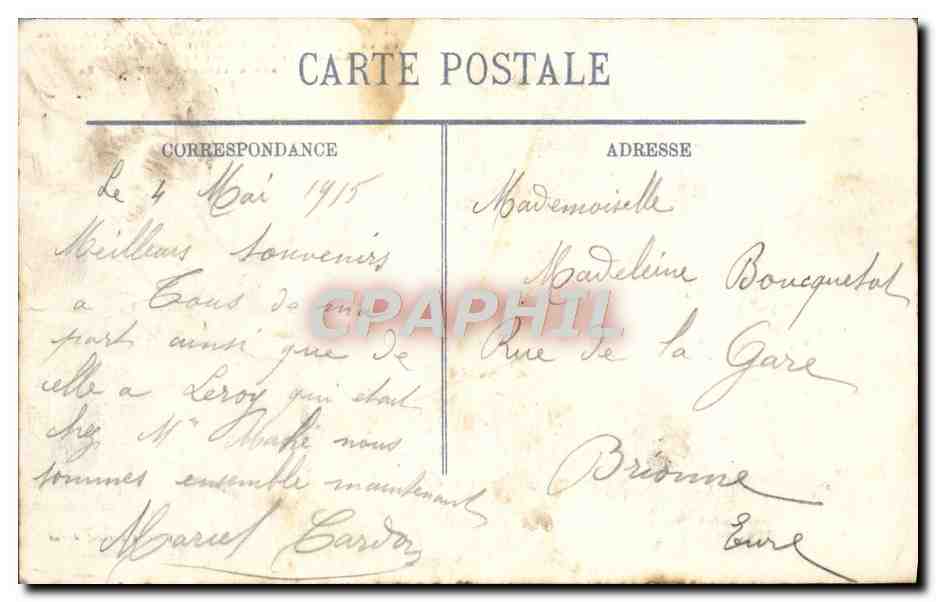 CARTE POSTALE
CORRESPONDANCE
Le 4 Mai 1915
Meilleurs souvenirs
a Tous de ma
part ainsi que de
celle a Leroy qui etait
chez Mr Mahé nous
sommes ensemble maintenant
Marcel Cardon
ADRESSE
Mademoiselle
Madeleine Boucquetot
Rue de la Gare
Brionne
Eure
CPAPHIL